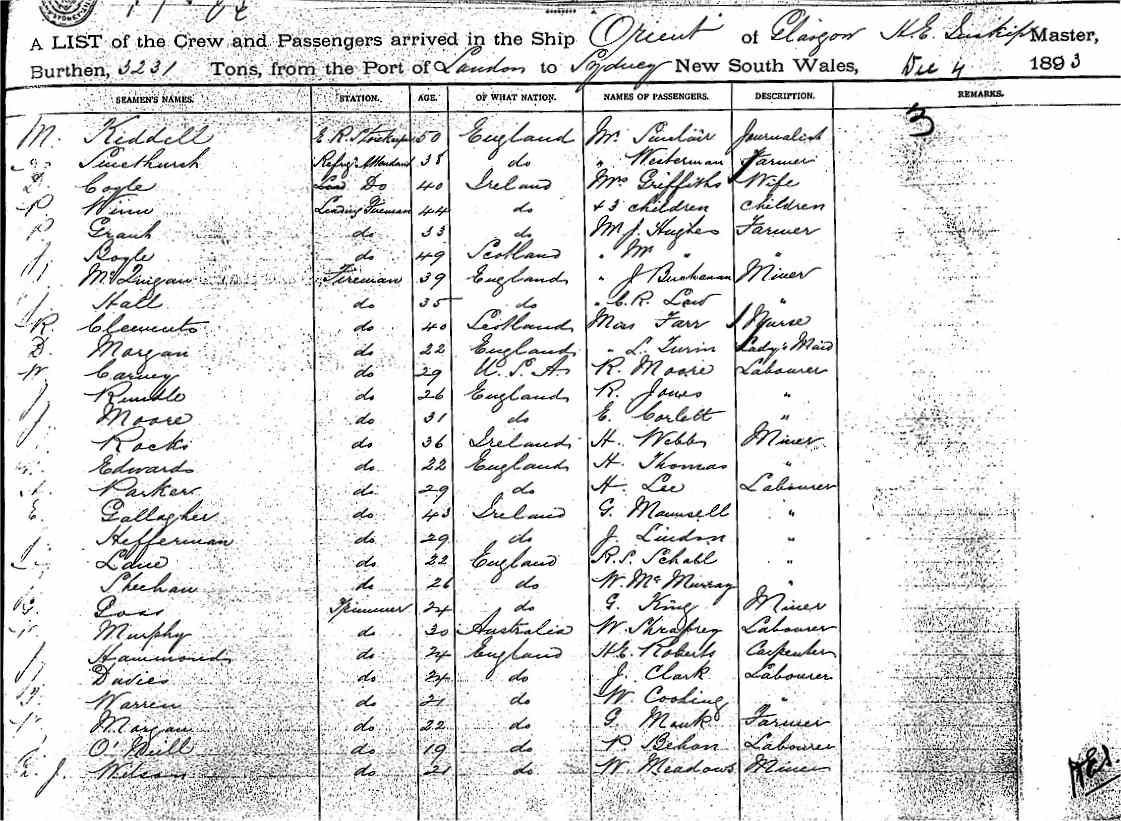 A LIST of the Crew and Passengers arrived in the Ship Orient of Glasgow H.E. Inskip Master,
Burthen, 3231 Tons, from the Port of London to Sydney New South Wales, Dec 4 1893
SEAMEN'S NAMES. STATION. AGE. OF WHAT NATION. NAMES OF PASSENGERS. DESCRIPTION. REMARKS.
3
M. Kiddell E. R. Storekeeper 50 England Mr. Sinclair Journalist
Refrig. Attendant 38 do " Westerman Farmer
Coyle Do 40 Ireland Mrs Griffiths Wife
P. Winn Leading Fireman 44 do + 3 children children
P. Grant do 33 do M J. Hughes Farmer
J. Boyle do 49 Scotland " Mr " "
Fireman 39 England " J Buchanan Miner
Hall do 35 do " C. R. Low "
R. Clements do 40 Scotland Miss Farr Nurse
D. Morgan do 22 England " L. Turin Lady's Maid
Carney do 29 U. S. A. R. Moore Labourer
J. Rumble do 26 England R. Jones "
J. Moore do 31 do E. Corlett "
Rocks do 36 Ireland H. Webb Miner
Edwards do 22 England H. Thomas "
Parker do 29 do H. Lee Labourer
E. Gallagher do 43 Ireland G. Maunsell "
Hefferman do 29 do J. Lindon "
Lane do 22 England R.S. Schabl "
Sheehan do 26 do W. McMurray "
G. Trimmer 24 do G. King Miner
Murphy do 30 Australia W. Labourer
J. Hammond do 24 England H.E. Roberts Carpenter
J. Davies do 24 do J. Clark Labourer
Warren do 21 do W. Cooling "
Morgan do 22 do G. Monk Farmer
O'Neill do 19 do P. Behan Labourer
J. Wilson do 21 do W. Meadows Miner